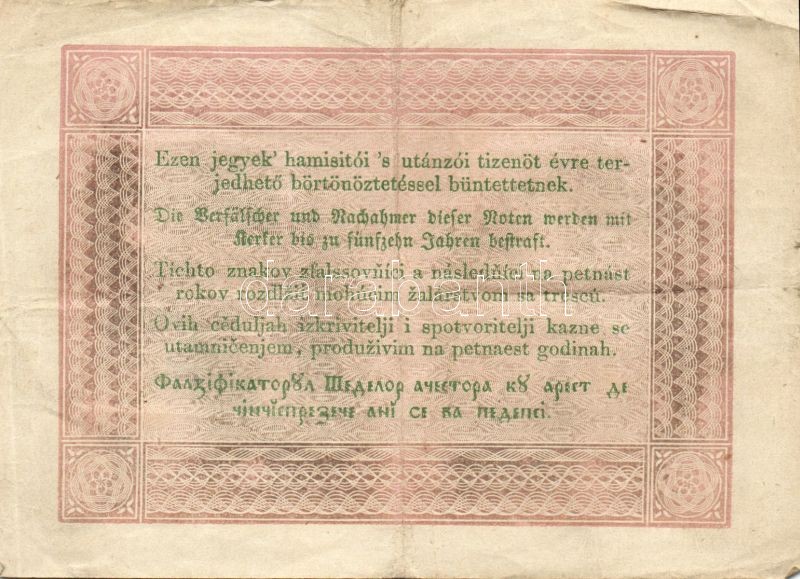 Ezen jegyek' hamisitói 's utánzói tizenöt évre ter-
jedhető börtönöztetéssel büntettetnek.
Die Verfälscher und Nachahmer dieser Noten werden mit
Kerker bis zu fünfzehn Jahren bestraft.
Tichto znakov zfalssovňíci a následňíci na petnást
rokov rozdlžiť mohúcim žalárstvom sa trescú.
darabanth
Ovih cěduljah izkrivitelji i spotvoritelji kazne se
utamničenjem, produživim na petnaest godinah.
Фалзіфікаторꙋл Шеделор ачестора кꙋ арест де
чінчіспрезече ані се ва педепсі.